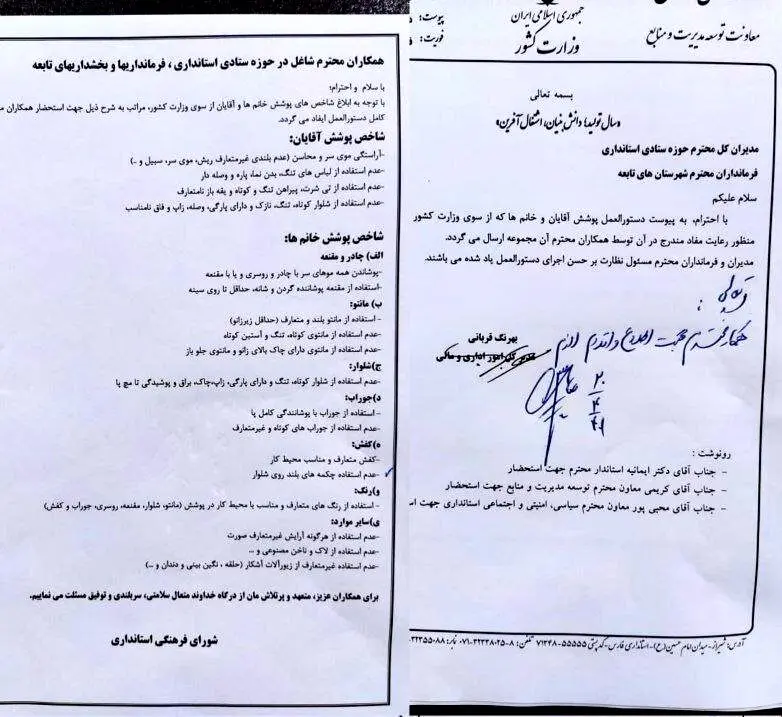 جمهوری اسلامی ایران
وزارت کشور
معاونت توسعه مدیریت و منابع
پیوست:
فوریت:
بسمه تعالی
«سال تولید؛ دانش بنیان، اشتغال آفرین»
مدیران کل محترم حوزه ستادی استانداری
فرمانداران محترم شهرستان های تابعه
سلام علیکم
با احترام، به پیوست دستورالعمل پوشش آقایان و خانم ها که از سوی وزارت کشور
منظور رعایت مفاد مندرج در آن توسط همکاران محترم آن مجموعه ارسال می گردد.
مدیران و فرمانداران محترم مسئول نظارت بر حسن اجرای دستورالعمل یاد شده می باشند.
بهرنگ قربانی
مدیرکل امور اداری و مالی
جهت اطلاع و اقدام لازم
رونوشت :
- جناب آقای دکتر ایمانیه استاندار محترم جهت استحضار
- جناب آقای کریمی معاون محترم توسعه مدیریت و منابع جهت استحضار
- جناب آقای محبی پور معاون محترم سیاسی، امنیتی و اجتماعی استانداری جهت
آدرس: شیراز - میدان امام حسین(ع) - استانداری فارس - کدپستی ۵۵۵۵۵-۷۱۳۴۸ تلفن: ۸-۳۲۲۳۸۰۲۵-۰۷۱ نمابر:
همکاران محترم شاغل در حوزه ستادی استانداری ، فرمانداریها و بخشداریهای تابعه
با سلام و احترام؛
با توجه به ابلاغ شاخص های پوشش خانم ها و آقایان از سوی وزارت کشور، مراتب به شرح ذیل جهت استحضار همکاران
کامل دستورالعمل ایفاد می گردد.
شاخص پوشش آقایان:
-آراستگی موی سر و محاسن (عدم بلندی غیرمتعارف ریش، موی سر، سبیل و ..)
-عدم استفاده از لباس های تنگ، بدن نما، پاره و وصله دار
-عدم استفاده از تی شرت، پیراهن تنگ و کوتاه و یقه باز نامتعارف
-عدم استفاده از شلوار کوتاه، تنگ، نازک و دارای پارگی، وصله، زاپ و فاق نامناسب
شاخص پوشش خانم ها:
الف) چادر و مقنعه
-پوشاندن همه موهای سر با چادر و روسری و یا با مقنعه
-استفاده از مقنعه پوشاننده گردن و شانه، حداقل تا روی سینه
ب) مانتو:
- استفاده از مانتو بلند و متعارف (حداقل زیرزانو)
-عدم استفاده از مانتوی کوتاه، تنگ و آستین کوتاه
-عدم استفاده از مانتوی دارای چاک بالای زانو و مانتوی جلو باز
ج)شلوار:
-عدم استفاده از شلوار کوتاه، تنگ و دارای پارگی، زاپ،چاک، براق و پوشیدگی تا مچ پا
د)جوراب:
- استفاده از جوراب با پوشانندگی کامل پا
-عدم استفاده از جوراب های کوتاه و غیرمتعارف
ه)کفش:
-کفش متعارف و مناسب محیط کار
-عدم استفاده چکمه های بلند روی شلوار
و)رنگ:
- استفاده از رنگ های متعارف و مناسب با محیط کار در پوشش (مانتو، شلوار، مقنعه، روسری، جوراب و کفش)
ی)سایر موارد:
-عدم استفاده از هرگونه آرایش غیرمتعارف صورت
-عدم استفاده از لاک و ناخن مصنوعی و ...
-عدم استفاده غیرمتعارف از زیورآلات آشکار (حلقه ، نگین بینی و دندان و ...)
برای همکاران عزیز، متعهد و پرتلاش مان از درگاه خداوند متعال سلامتی، سربلندی و توفیق مسئلت می نماییم.
شورای فرهنگی استانداری